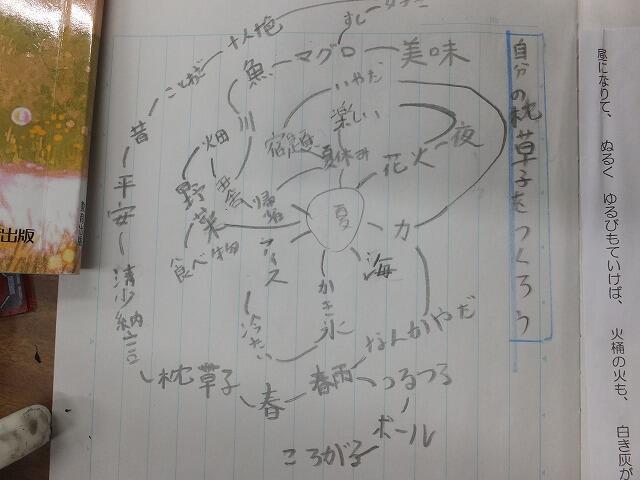 自分の枕草子をつくろう
昼になりて、ぬるくゆるびもていけば、火桶の火も、白き灰が
夏
夏休み
楽しい
いやだ
宿題
花火
夜
カ
海
かき氷
アイス
帰省
田舎
川
魚
マグロ
美味
すし
畑
野菜
食べ物
冷たい
なんかやだ
春雨
つるつる
ボール
ころがる
春
枕草子
清少納言
平安
昔
ことが
出版